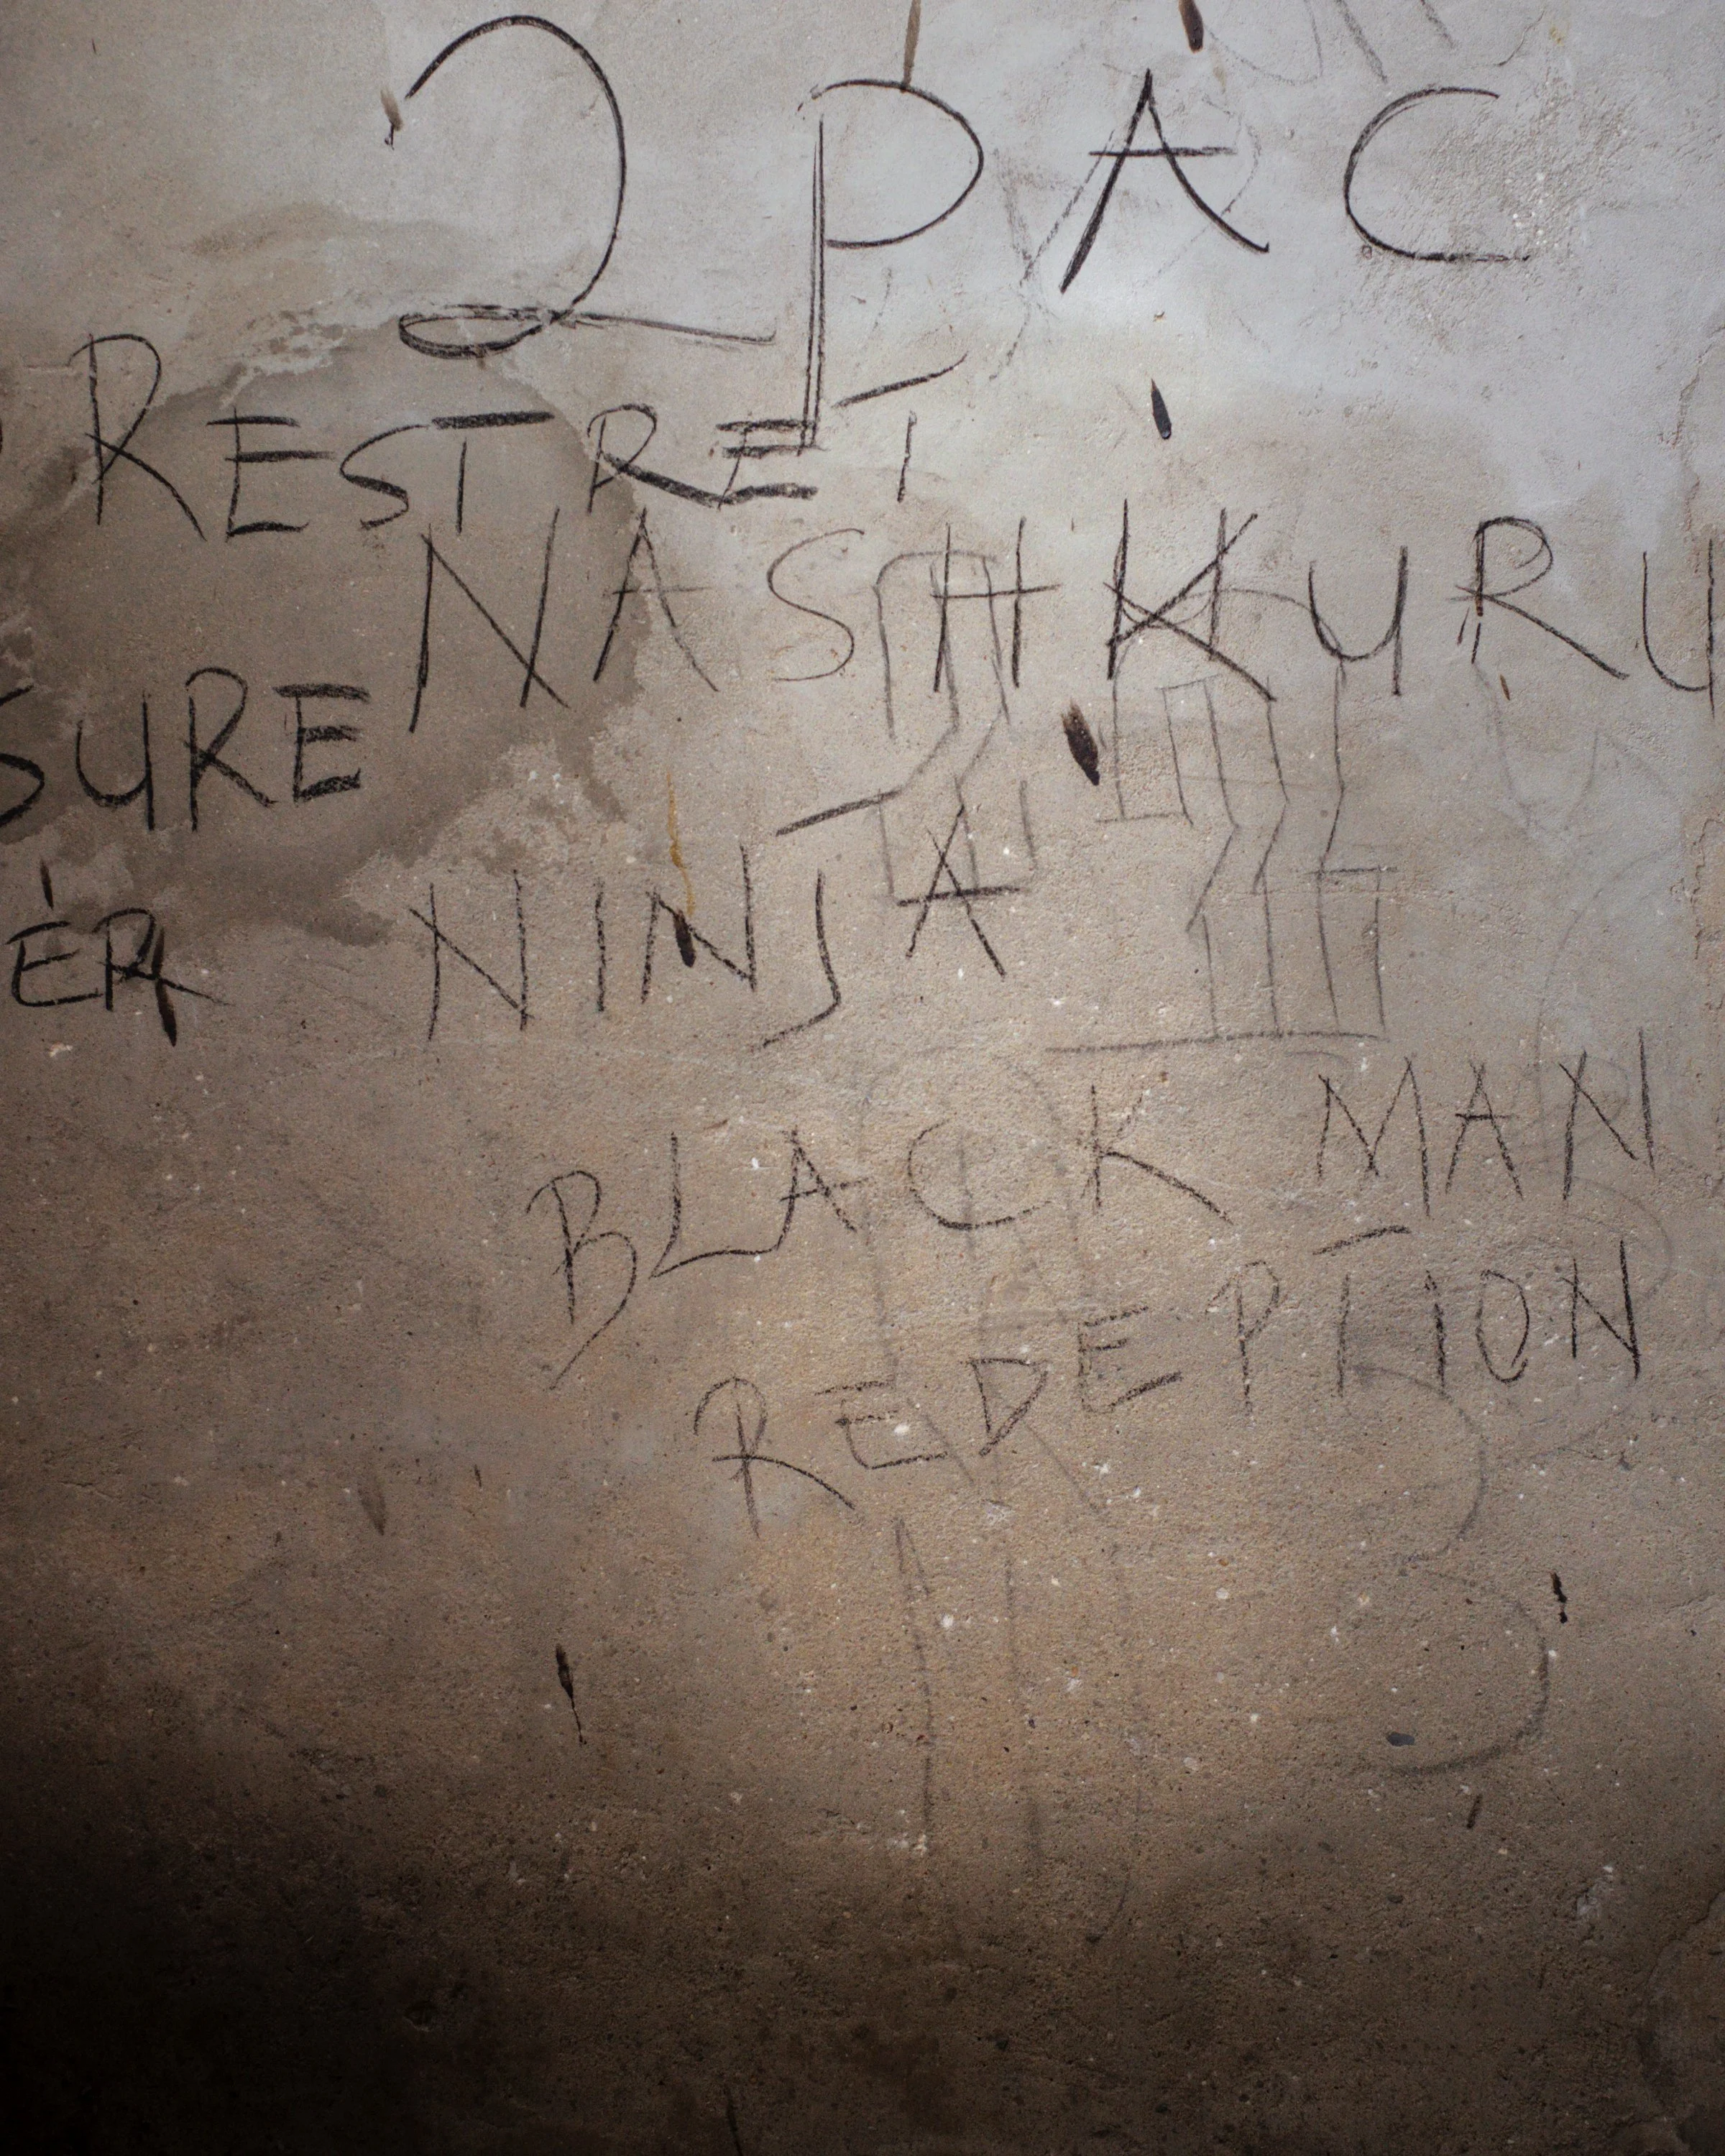 2PAC
RESTRET
NASH KURU
SURE
ER NINJA
BLACK MAN
REDEPTION